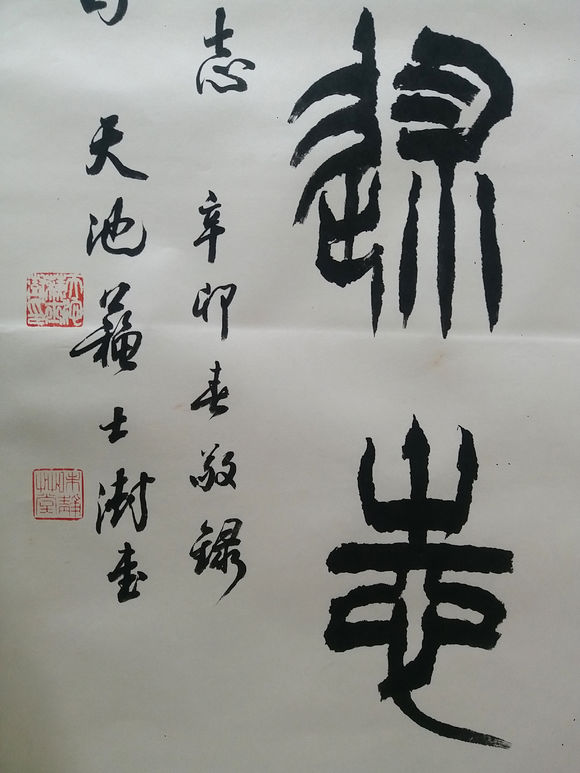 志
志 辛卯春敬録
天池蘇士澍書